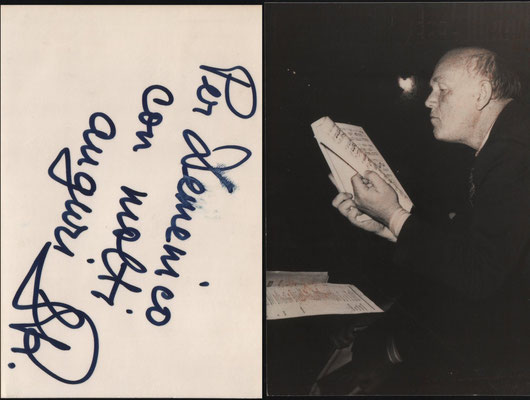 Per Domenico
con molti
auguri